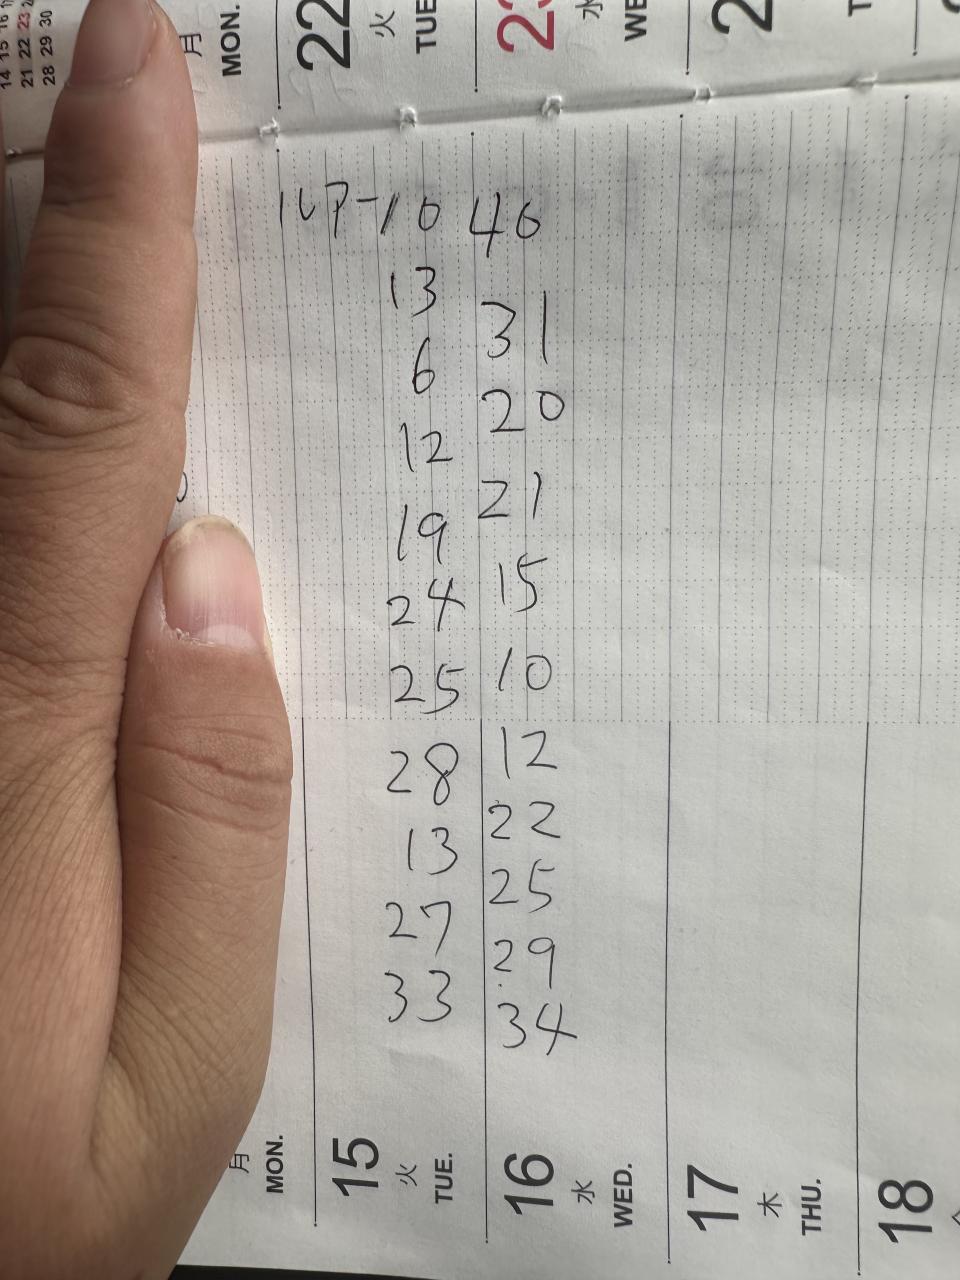 14 15 16
21 22 23
28 29 30
月 MON.
22 火 TUE
水 WE
10 40
13 31
6 20
12 21
19 15
24 10
25 12
28 22
13 25
27 29
33 34
月 MON.
15 火 TUE.
16 水 WED.
17 木 THU.
18